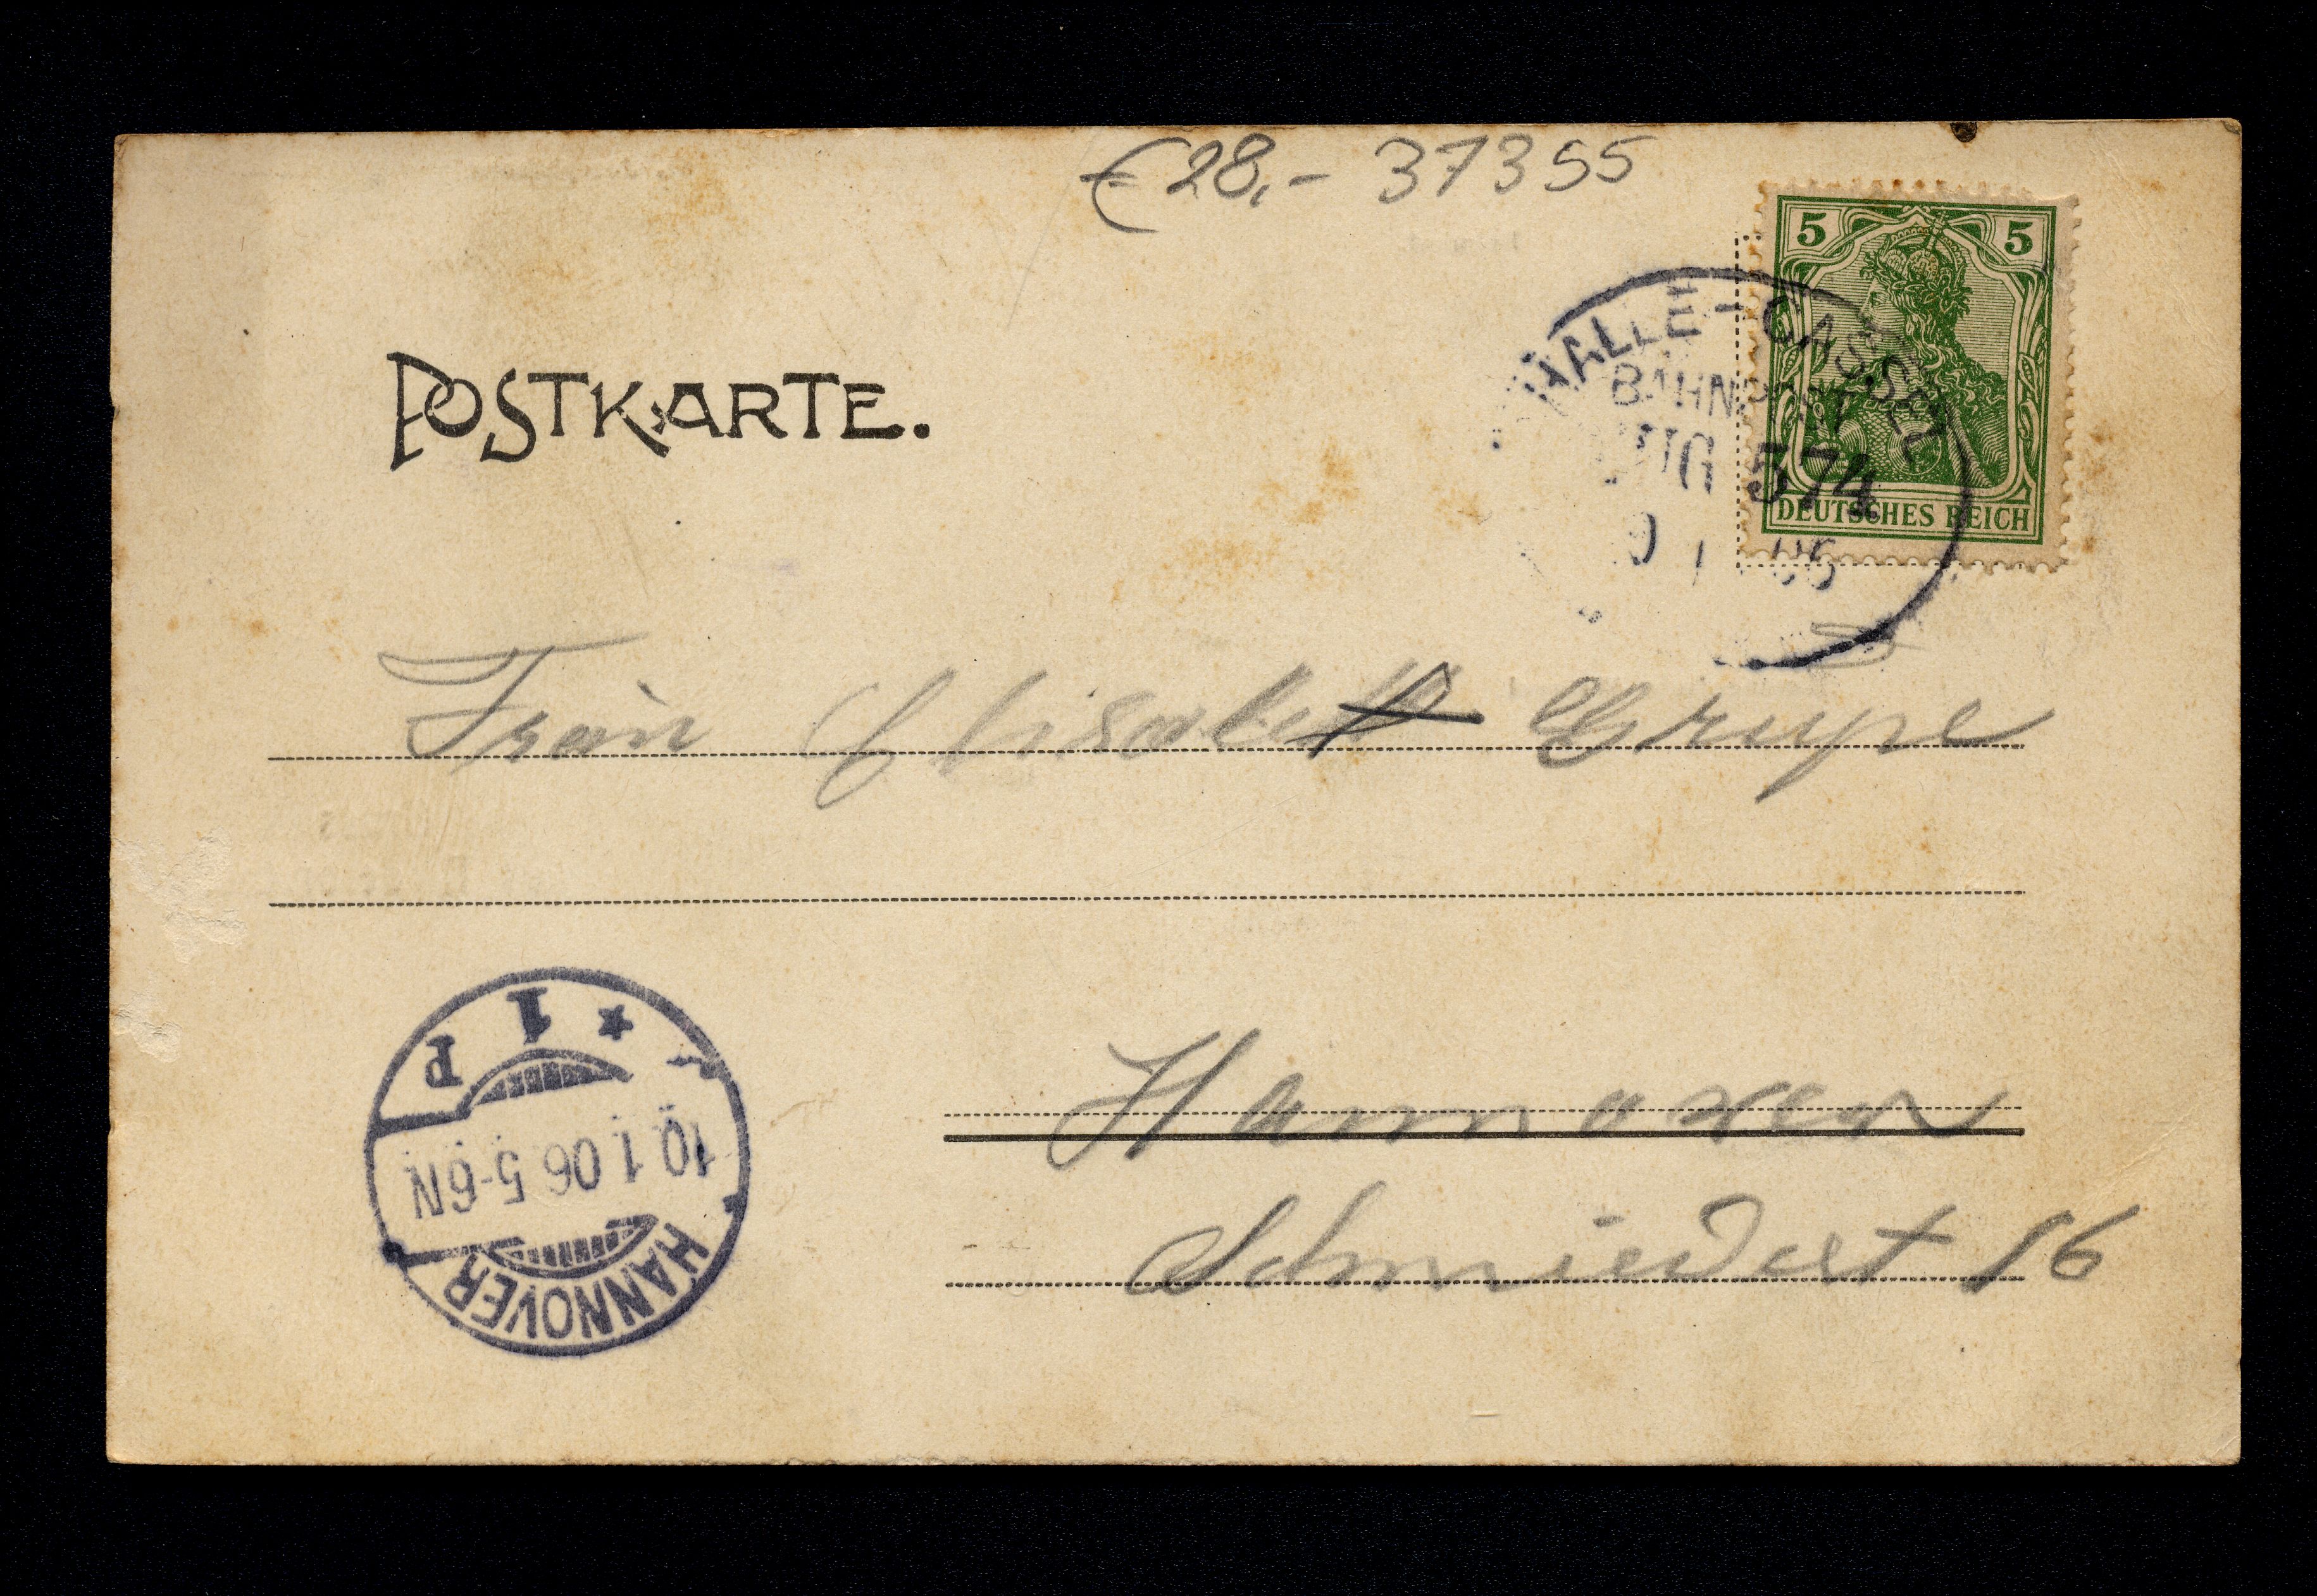 € 28,- 37355
5 5
DEUTSCHES REICH
HALLE - CASSEL
BAHNPOST
ZUG 574
9 1 06
POSTKARTE.
Frau Elisabeth Grupe
Hannover
Schmiedest 16
* 1 P
10.1.06 5-6N
HANNOVER